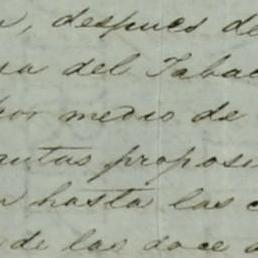 , despues de
del Taba
por medio de
proposi
hasta las
de las doce